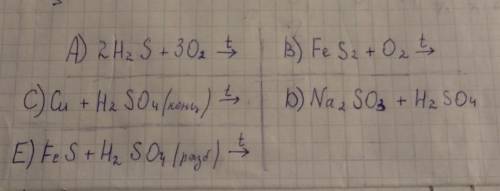 A) 2H₂S + 3O₂ →ᵗ
B) FeS₂ + O₂ →ᵗ
C) Cu + H₂SO₄ (конц) →ᵗ
D) Na₂SO₃ + H₂SO₄
E) FeS + H₂SO₄ (разб) →ᵗ